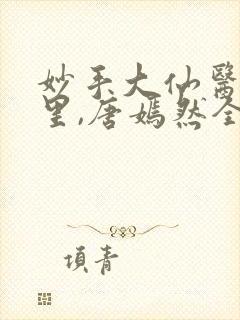 妙手大仙醫
里,唐嫣然全
項青